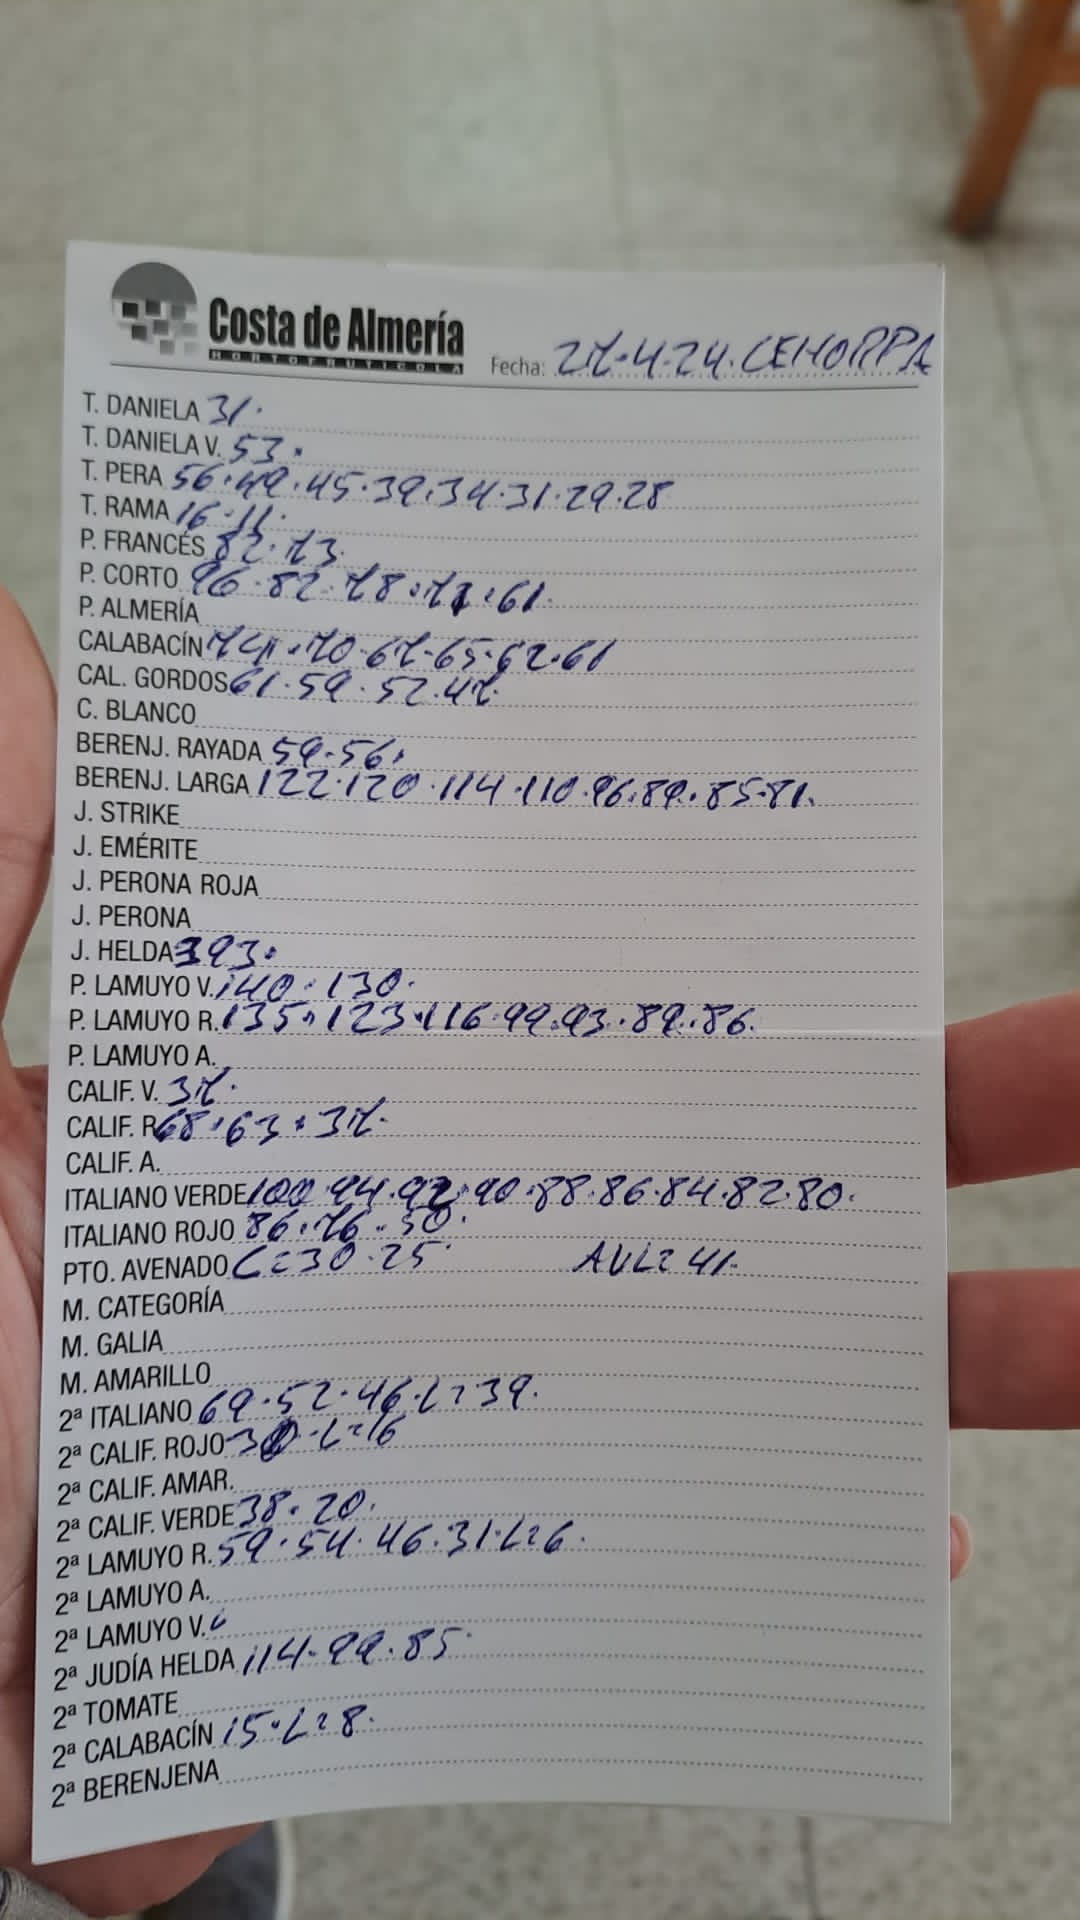 Costa de Almería
HORTOFRUTICOLA
Fecha: 27.4.24. CEHORPA
T. DANIELA 31.
T. DANIELA V. 53.
T. PERA 56.49.45.39.34.31.29.28
T. RAMA 16.11.
P. FRANCÉS 82.73.
P. CORTO 96.82.78.71.61.
P. ALMERÍA
CALABACÍN 74.70.67.65.62.61
CAL. GORDOS 61.59.52.47.
C. BLANCO
BERENJ. RAYADA 59.56.
BERENJ. LARGA 122.120.114.110.96.89.85.81.
J. STRIKE
J. EMÉRITE
J. PERONA ROJA
J. PERONA
J. HELDA 393.
P. LAMUYO V. 140.130.
P. LAMUYO R. 135.123.116.99.93.89.86.
P. LAMUYO A.
CALIF. V. 37.
CALIF. R 68.63.37.
CALIF. A.
ITALIANO VERDE 100.94.92.90.88.86.84.82.80.
ITALIANO ROJO 86.76.50.
PTO. AVENADO C=30.25 AVL=41.
M. CATEGORÍA
M. GALIA
M. AMARILLO
2ª ITALIANO 69.52.46.L=39.
2ª CALIF. ROJO L=16
2ª CALIF. AMAR.
2ª CALIF. VERDE 38.20.
2ª LAMUYO R. 59.54.46.31.L=6.
2ª LAMUYO A.
2ª LAMUYO V.
2ª JUDÍA HELDA 114.99.85.
2ª TOMATE
2ª CALABACÍN 15.L=8.
2ª BERENJENA